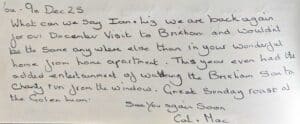 6th - 9th Dec 23
What can we say Ian & Liz we are back again
for our December Visit to Brixham and wouldn't
be the same any where else than in your wonderful
home from home apartment. This year even had the
added entertainment of watching the Brixham Santa
Charity run from the window. Great Sunday roast at
the Golden Lion.
See you again Soon
Col + Mac